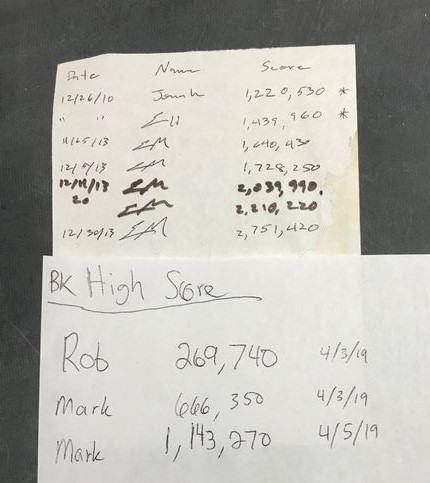 Date Name Score
12/26/10 Jonah 1,220,530 *
" " Eli 1,439,960 *
11/25/13 EM 1,640,430
12/9/13 EM 1,728,250
12/11/13 EM 2,039,990.
20 EM 2,210,220
12/30/13 EM 2,751,420
BK High Score
Rob 269,740 4/3/19
Mark 666,350 4/3/19
Mark 1,143,270 4/5/19